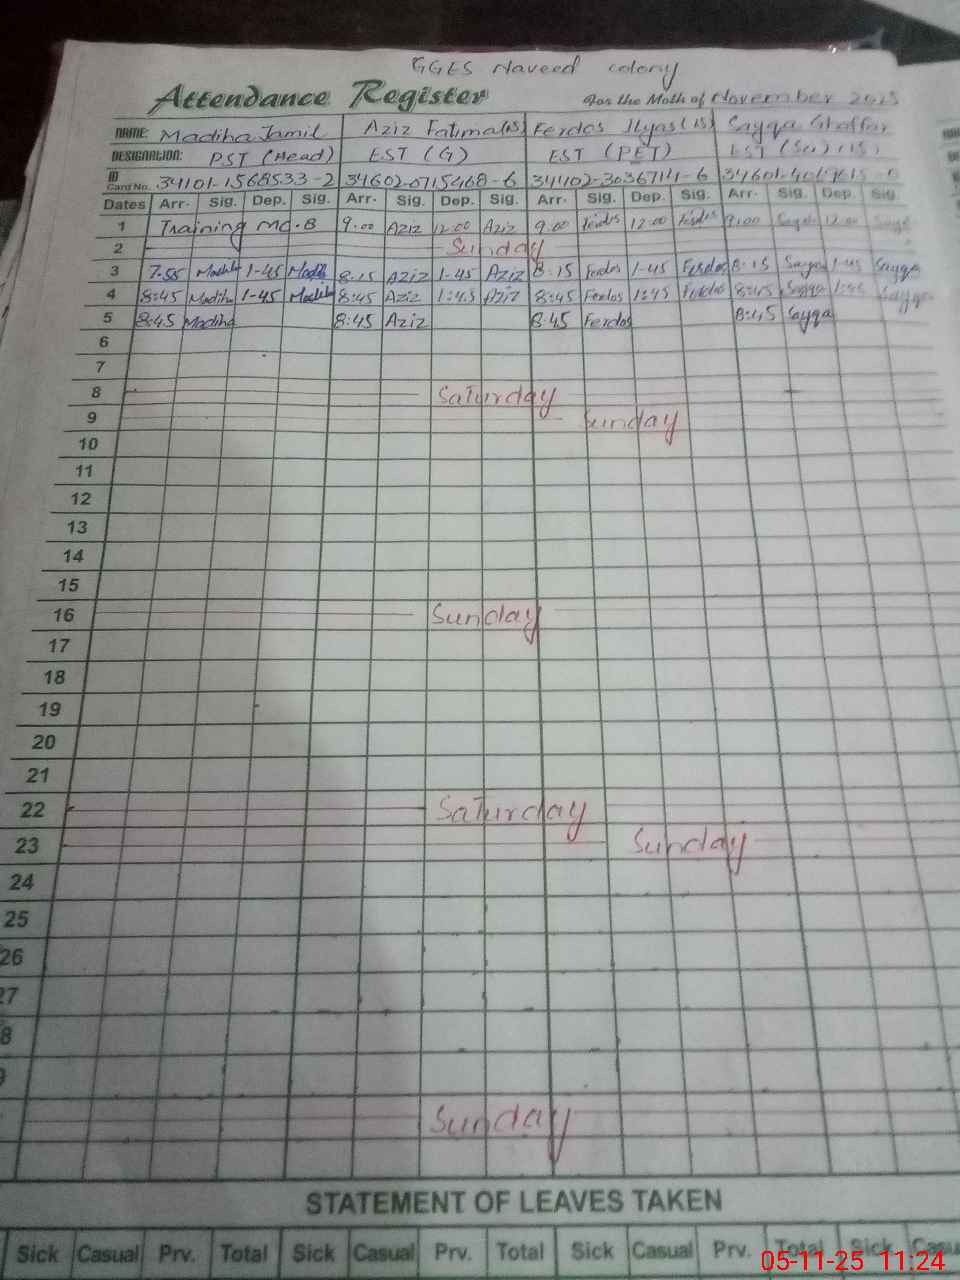 GGES Naveed colony
Attendance Register for the Moth of November 2025
NAME: Madiha Jamil Aziz Fatima(15) Ferdos Ilyas (15) Sayqa Ghaffar
DESIGNATION: PST (Head) EST (G) EST (PET) EST
ID Card No. 34101-1568533-2 34602-0715468-6 34402-3036711-6
Dates Arr. Sig. Dep. Sig. Arr. Sig. Dep. Sig. Arr. Sig. Dep. Sig. Arr. Sig. Dep. Sig.
1 Training MC.B 9.00 Aziz 12.00 Aziz 9.00 Ferdos 12.00 Ferdos 9.00 Sayqa 12.00 Sayqa
2 Sunday
3 7.55 Madiha 1-45 Madiha 8.15 Aziz 1-45 Aziz 8-15 Ferdos 1-45 Ferdos 8-15 Sayqa 1-45 Sayqa
4 8:45 Madiha 1-45 Madiha 8:45 Aziz 1:45 Aziz 8:45 Ferdos 1:45 Ferdos 8:45 Sayqa 1:45 Sayqa
5 8:45 Madiha 8:45 Aziz 8:45 Ferdos 8:45 Sayqa
6
7
8 Saturday
9 Sunday
10
11
12
13
14
15
16 Sunday
17
18
19
20
21
22 Saturday
23 Sunday
24
25
26
27
8
9
Sunday
STATEMENT OF LEAVES TAKEN
Sick Casual Prv. Total Sick Casual Prv. Total Sick Casual Prv. Total Sick Casual
05-11-25 11:24